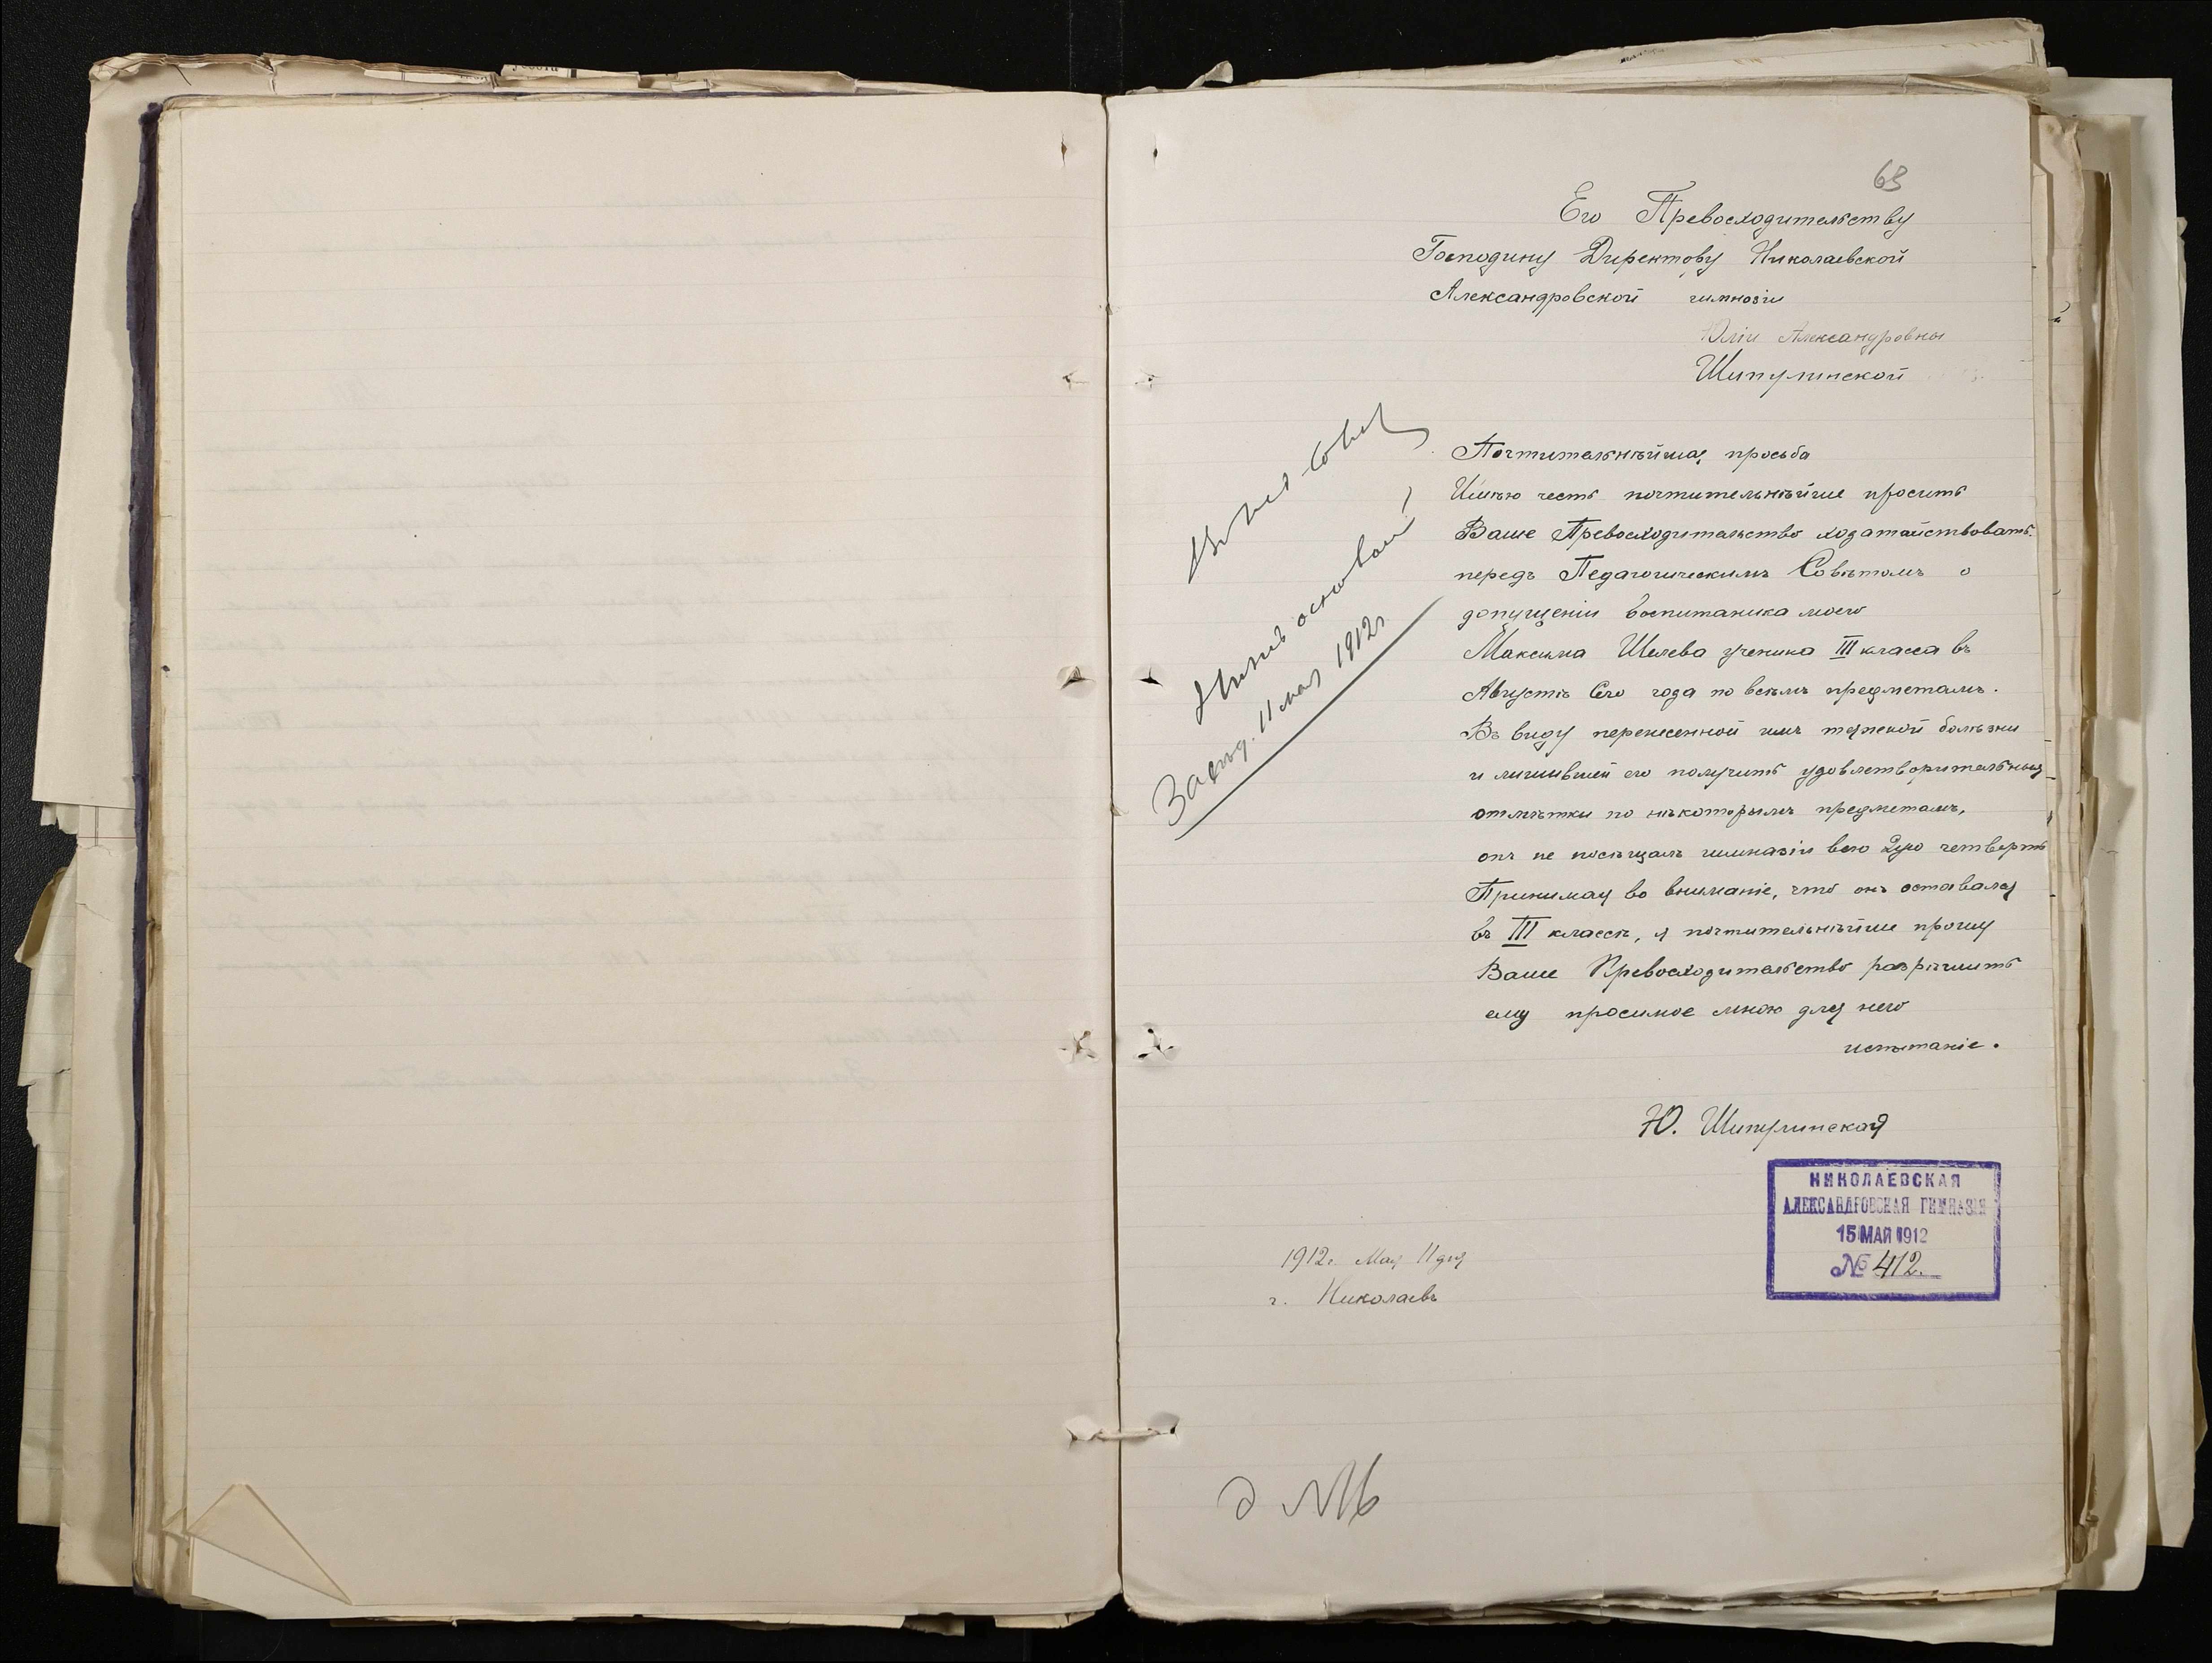 63
Его Превосходительству
Господину Директору Николаевской
Александровской гимназіи
Юліи Александровны
Шипулинской
Почтительнѣйшая просьба
Имѣю честь почтительнѣйше просить
Ваше Превосходительство ходатайствовать
передъ Педагогическимъ Совѣтомъ о
допущеніи воспитаника моего
Максима Шелева ученика III класса въ
Августѣ Сего года по всѣмъ предметамъ.
Въ виду перенесенной имъ тяжкой болѣзни
и лишившей его получить удовлетворительныя
отмѣтки по нѣкоторымъ предметамъ,
онъ не посѣщалъ гимназіи всю 2ую четверть
Принимая во вниманіе, что онъ оставался
въ III классѣ, я почтительнѣйше прошу
Ваше Превосходительство разрѣшить
ему просимое мною для него
испытаніе.
Ю. Шипулинская
НИКОЛАЕВСКАЯ
АЛЕКСАНДРОВСКАЯ ГИМНАЗІЯ
15 МАЯ 1912
№ 412.
1912г. Мая 11 дня
г. Николаевъ
Засѣд. 11 мая 1912г.